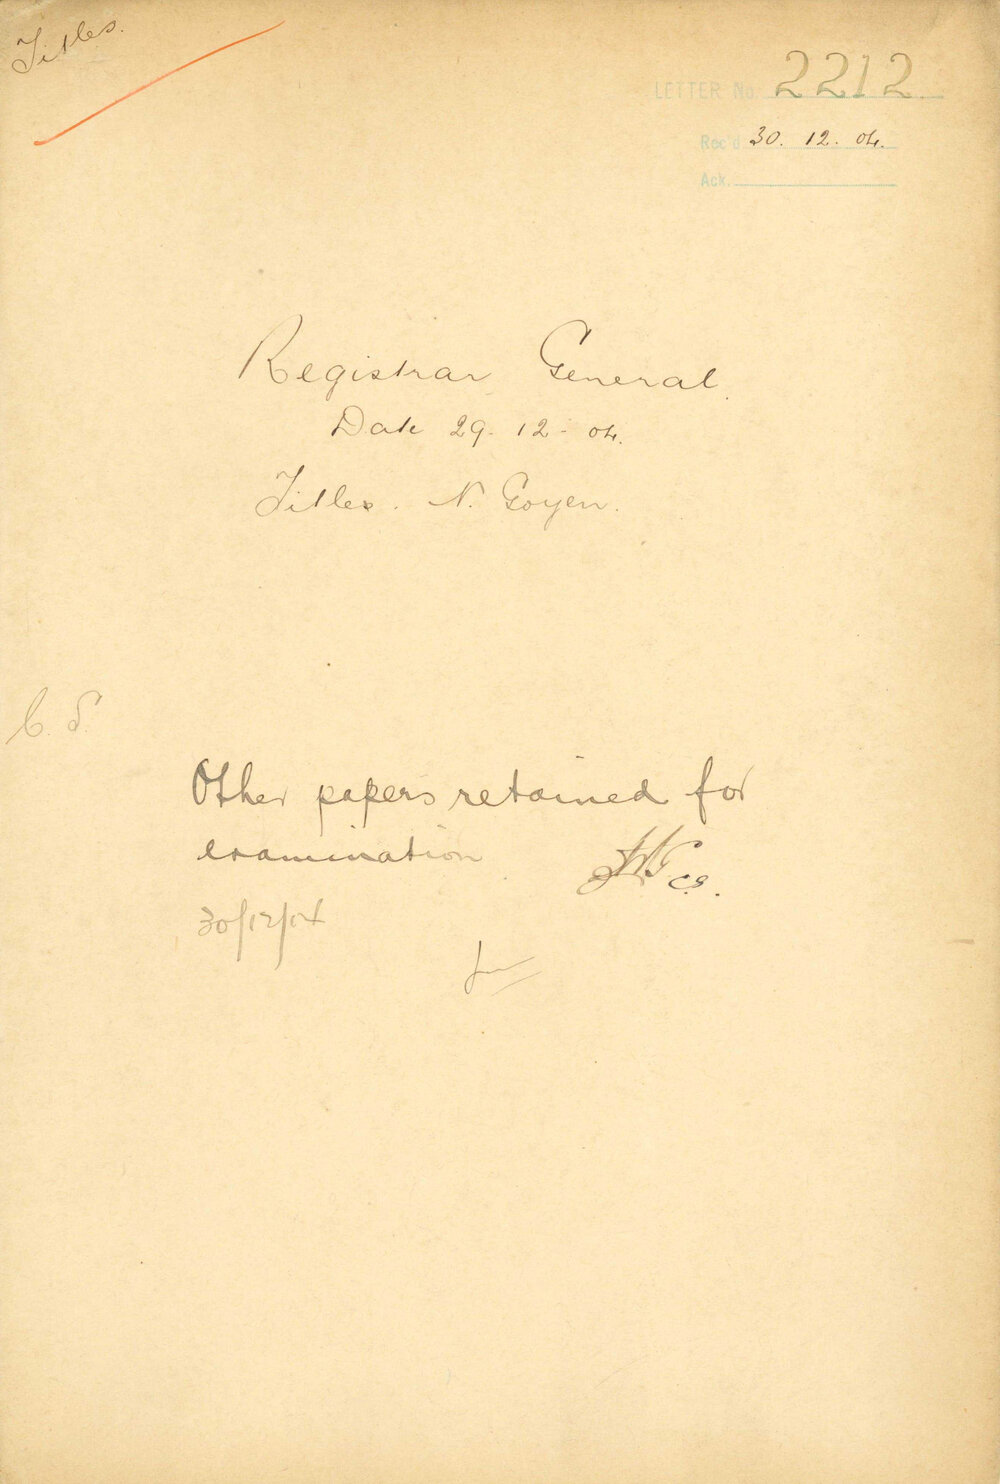 Titles.
LETTER No. 2212
Rec'd 30. 12. 04.
Ack.
Registrar General.
Date 29. 12. 04.
Titles. N. Goyen.
C. S.
Other papers retained for
examination
C.S.
30/12/04